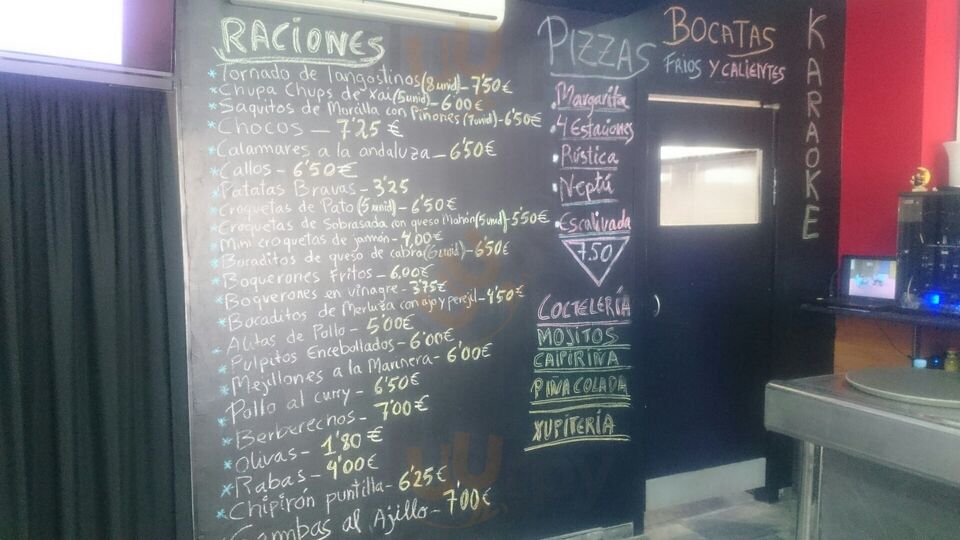 RACIONES
* Tornado de langostinos (8 unid) - 7'50 €
* Chupa Chups de Xai (5 unid) - 6'00 €
* Saquitos de Morcilla con Piñones (7 unid) - 6'50 €
* Chocos - 7'25 €
* Calamares a la andaluza - 6'50 €
* Callos - 6'50 €
* Patatas Bravas - 3'25
* Croquetas de Pato (5 unid) - 6'50 €
* Croquetas de Sobrasada con queso Mahón (5 unid) - 5'50 €
* Mini croquetas de jamón - 4,00 €
* Bocaditos de queso de cabra (6 unid) - 6'50 €
* Boquerones Fritos - 6,00 €
* Boquerones en vinagre - 3'75 €
* Bocaditos de Merluza con ajo y perejil - 4'50 €
* Alitas de Pollo - 5'00 €
* Pulpitos Encebollados - 6'00 €
* Mejillones a la Marinera - 6'00 €
* Pollo al curry - 6'50 €
* Berberechos - 7'00 €
* Olivas - 1'80 €
* Rabas - 4'00 €
* Chipirón puntilla - 6'25 €
Gambas al Ajillo - 7'00 €
PIZZAS
• Margarita
• 4 Estaciones
• Rústica
• Neptú
• Escalivada
7.50
COCTELERÍA
MOJITOS
CAIPIRIÑA
PIÑA COLADA
XUPITERÍA
BOCATAS
FRIOS Y CALIENTES
KARAOKE